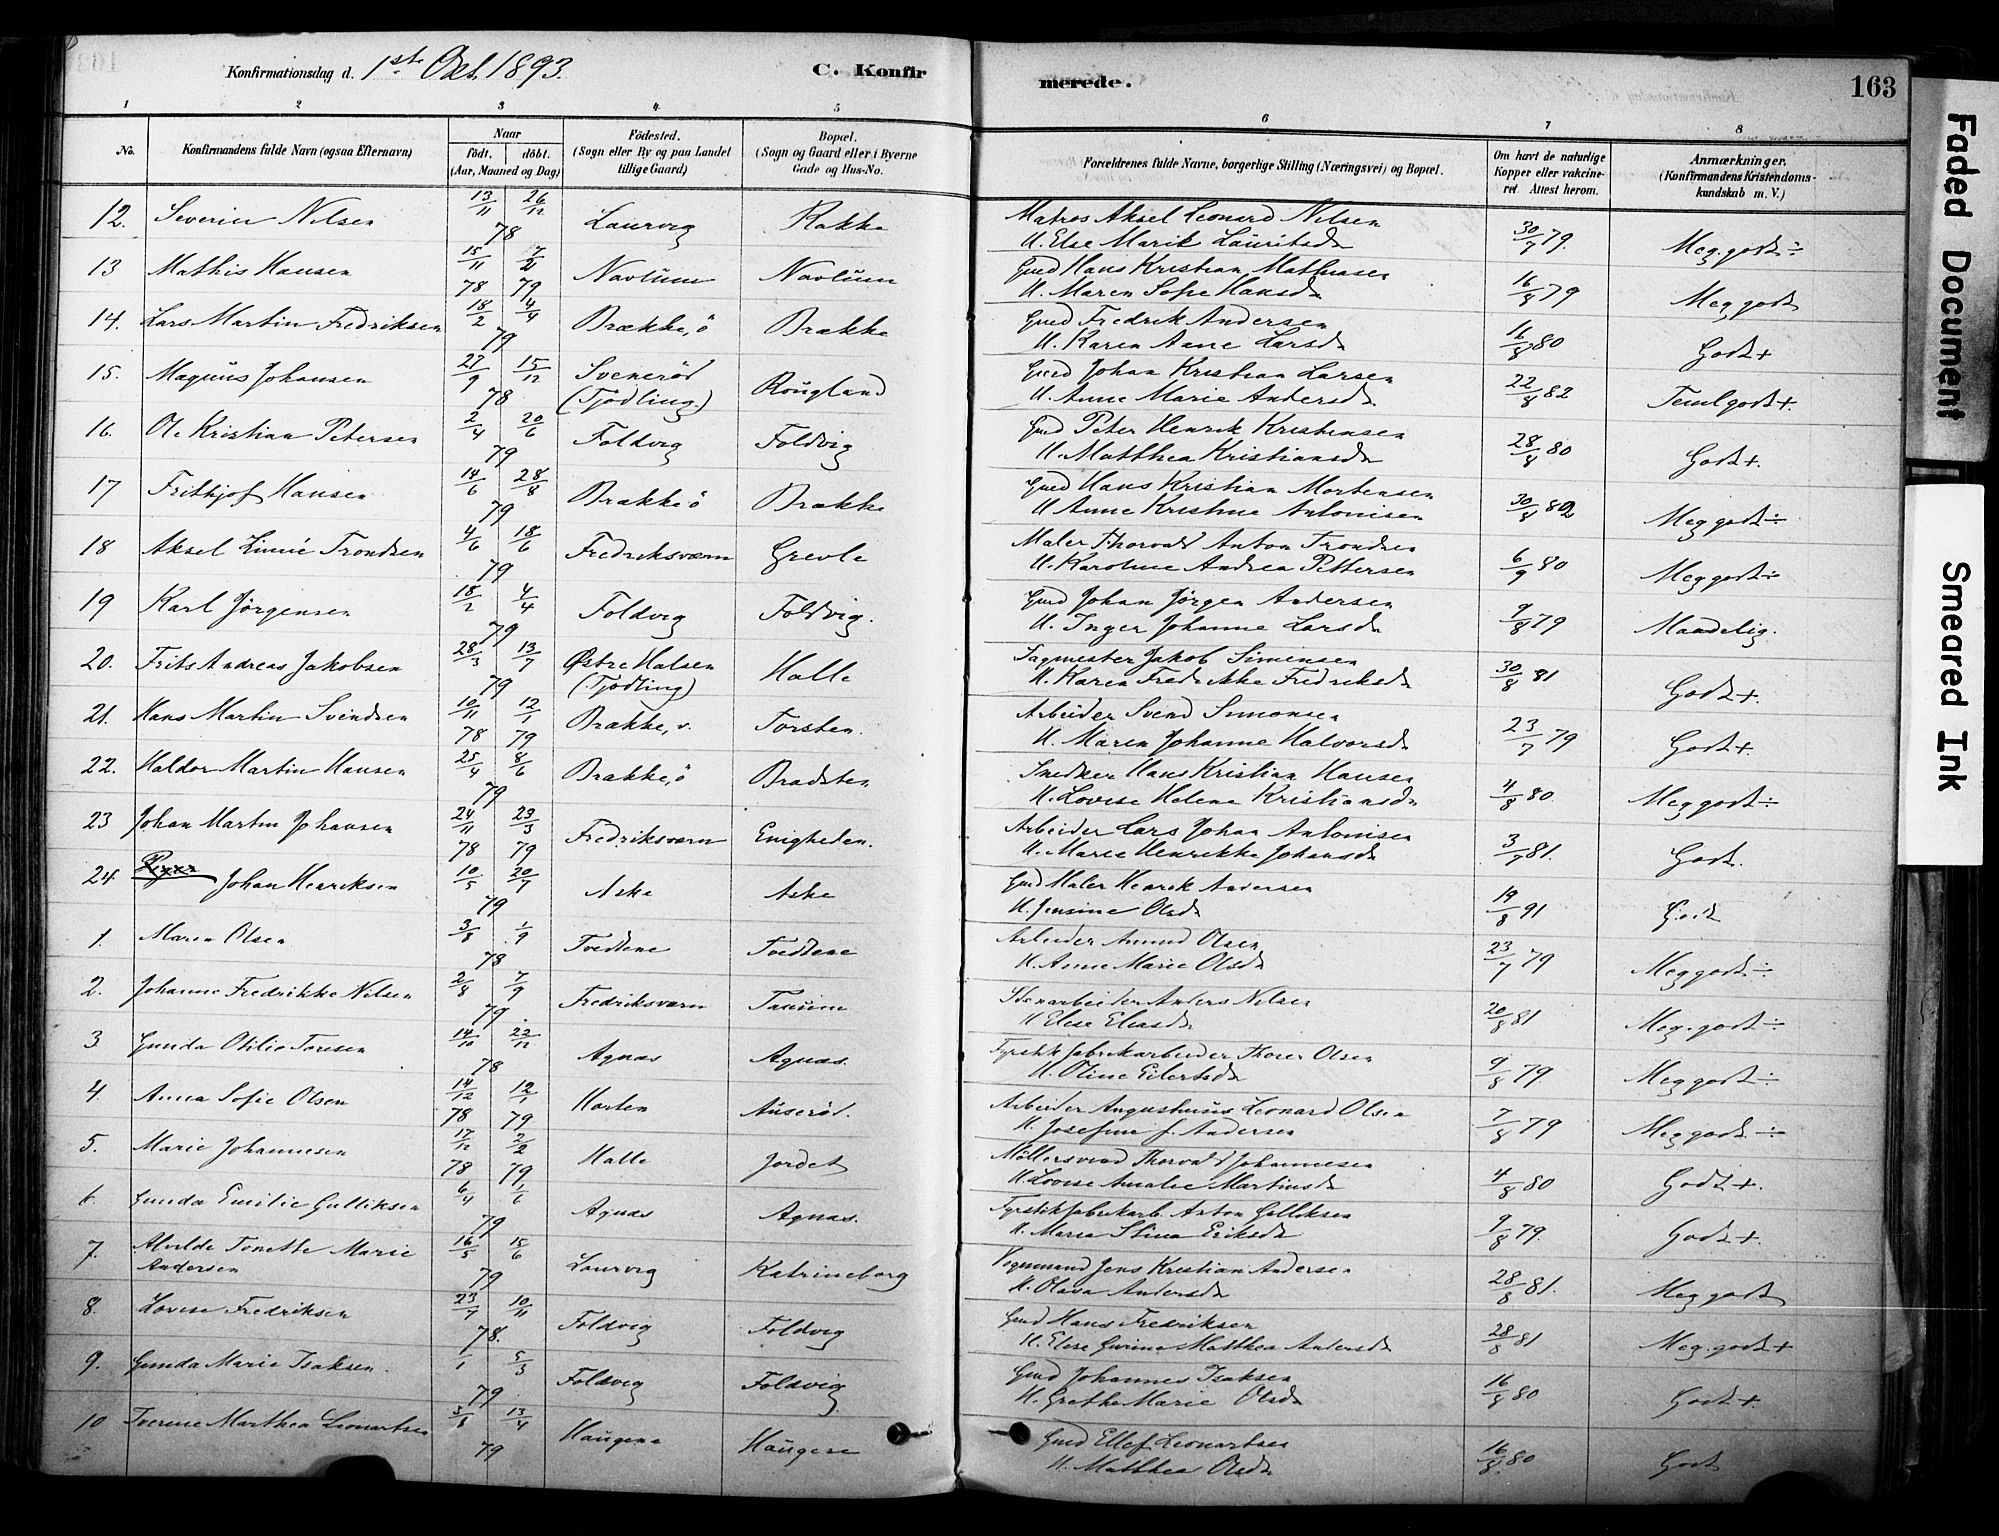 Konfirmationsdag d. 1st Okt. 1893. C. Konfir merede. 163
1 2 3 4 5 6 7 8
No. Konfirmandens fulde Navn (ogsaa Efternavn) Naar födt. döbt. (Aar, Maaned og Dag) Födested. (Sogn eller By og paa Landet tillige Gaard) Bopæl. (Sogn og Gaard eller i Byerne Gade og Hus-No. Forældrenes fulde Navne, borgerlige Stilling (Næringsvei) og Bopæl. Om havt de naturlige Kopper eller vakcineret. Attest herom. Anmærkninger. (Konfirmandens Kristendomskundskab m. V.)
12. Severin Nilsen 13/11 26/12 78 Laurvig Rakke Matros Aksel Leonard Nilsen
H. Else Marie Lauritsd. 30/7 79. Meg. godt ÷
13 Mathis Hansen 15/11 78 7/2 79 Navlum Navlum Grd Hans Kristian Mathiasen
H. Maren Sofie Hansd. 16/8 79 Meg godt
14. Lars Martin Fredriksen 18/2 4/4 79 Brække, ö Brække Grd Fredrik Andersen
H. Karen Anne Larsd. 16/8 80 Godt +
15. Magnus Johansen 27/9 15/12 78 Svenerød (Tjödling.) Rougland Grd Johan Kristian Larsen
H. Anne Marie Andersd. 22/8 82 Teml godt +.
16. Ole Kristian Petersen 2/4 20/6 79 Foldvig Foldvig Grd Peter Henrik Kristensen
H. Matthea Kristiansd. 28/8 80 Godt +.
17 Frithjof Hansen 14/6 28/8 79 Brække ö Brække Grd Hans Kristian Mortensen
H Anne Kristine Antonisen 30/8 82 Meg godt ÷
18 Aksel Linné Trondsen 4/6 18/6 79 Fredriksværn Grevle Maler Thorvald Anton Trondsen
H. Karoline Andrea Pettersen 6/9 80 Meg godt ÷
19 Karl Jörgensen 18/2 4/4 79 Foldvig Foldvig. Grd Johan Jörgen Andersen
H. Inger Johanne Larsd. 9/8 79 Maadelig.
20. Frits Andreas Jakobsen 28/3 13/7 79 Østre Halsen (Tjödling) Halle Sagmester Jakob Simensen
H. Karen Fredrikke Fredriksd. 30/8 81 Godt +.
21. Hans Martin Svendsen 10/11 78 12/1 79 Brække, v. Torsten. Arbeider Svend Simonsen
H. Maren Johanne Halvorsd. 23/7 79 Godt +
22. Haldor Martin Hansen 25/4 8/6 79 Brække, ö Bradsten Snedker Hans Kristian Hansen
H. Lovise Helene Kristiansd. 4/8 80. Meg godt ÷
23 Johan Martin Johansen 24/11 78 23/3 79 Fredriksværn Enigheden. Arbeider Lars Johan Antonisen
H. Maren Henrikke Johansd. 3/7 81. Godt.
24. Johan Henriksen 10/5 20/7 79 Aske Aske Grd Maler Henrik Andersen
H. Jensine Olsd. 19/8 91 Godt
1. Maren Olsen 3/8 1/9 78 Tvedtene Tvedtene Arbeider Amund Olsen
H. Anne Marie Olsd. 23/7 79 Meg godt ÷
2. Johanne Fredrikke Nilsen 2/8 7/9 79 Fredriksværn Tanum Stenarbeider Anders Nilsen
H Elise Eliasd. 20/8 81 Meg. godt ÷
3 Gunda Otilie Toresen 14/10 22/12 78 Agnæs Agnæs. Fyrstikfabrikarbeider Thorer Olsen
H. Oline Eilertsd. 9/8 79. Meg godt ÷
4. Anna Sofie Olsen 14/12 78 12/1 79 Horten Auserød. Arbeider Augustinus Leonard Olsen
H. Josefine f. Andersen 7/8 79 Meg godt ÷
5. Marie Johannesen 17/12 78 2/2 79 Halle Jordet Möllersvend Thorvald Johannesen
H Lovise Amalie Martinsd. 4/8 80 Godt +.
6. Gunda Emilie Gulliksen 6/4 1/6 79 Agnæs Agnæs. Fyrstikfabrikarb. Anton Gulliksen
H. Maria Stina Eriksd. 9/8 79. Godt +.
7. Alvilde Tonette Marie
Andersen 16/5 15/6 79 Laurvig Katrineborg Vognmand Jens Kristian Andersen
H. Olava Andersd. 28/8 81. Meg godt
8. Lovise Fredriksen 23/7 10/11 78. Foldvig Foldvig Grd Hans Fredriksen
H. Elise Gurine Matthea Andersd. 28/8 81 Meg. godt +
9. Gunda Marie Isaksen. 7/1 5/3 79 Foldvig Foldvig Grd Johannes Isaksen
H. Grethe Marie Olsd. 16/8 80 Godt +.
10 Marthea Leonartsen 3/1 13/4 79 Haugene Haugene Grd Ellef Leonartsen
H. Matthea Olsd. 16/8 80 Godt
Faded Document
Smeared Ink